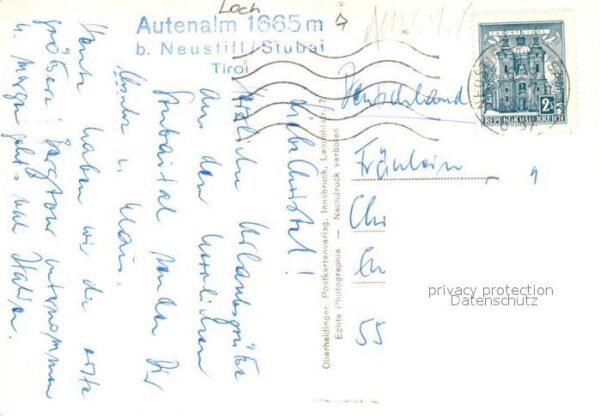 Loch
Autenalm 1665m
b. Neustift/Stubai
Tirol
Liebe Christel!
Herzliche Urlaubsgrüße
aus dem herrlichen
Stubaital senden Dir
u. Klaus.
Heute haben wir die erste
größere Bergtour unternommen
u. Morgen geht's nach Italien.
Oberhaidinger, Postkartenverlag, Innsbruck, Langstr.
Echte Photographie — Nachdruck verboten
CHRISTKINDL
2S
REPUBLIK ÖSTERREICH
Deutschland
Fräulein
Chr
En
55
privacy protection
Datenschutz